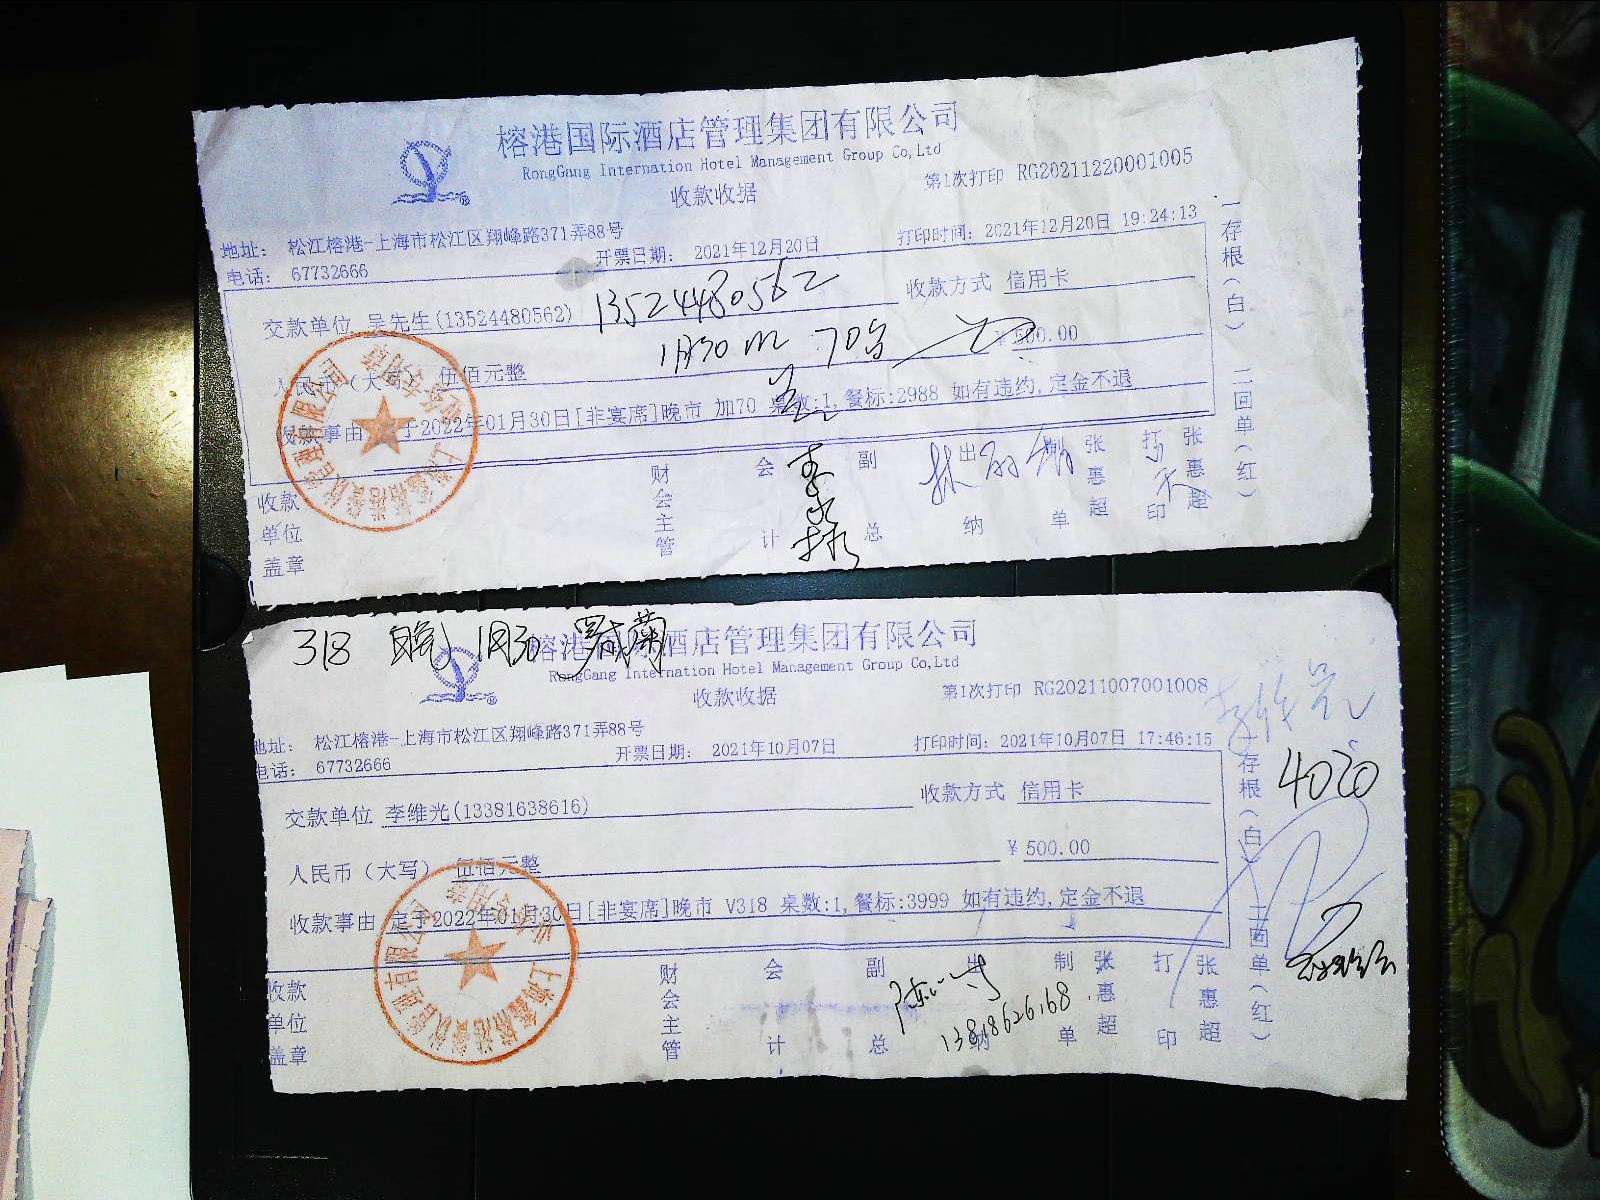 榕港国际酒店管理集团有限公司
RongGang Internation Hotel Management Group Co,Ltd
收款收据
第1次打印 RG20211220001005
地址： 松江榕港-上海市松江区翔峰路371弄88号
电话： 67732666
开票日期： 2021年12月20日
打印时间：2021年12月20日 19:24:13
交款单位 吴先生(13524480562) 13524480562
收款方式 信用卡
1月30 70
人民币（大写） 伍佰元整
￥500.00
收款事由 定于2022年01月30日[非宴席]晚市 加70 桌数:1,餐标:2988 如有违约,定金不退
收款单位盖章
财会主管
会计
副总
出纳
制单 张惠超
打印 张惠超
一存根（白） 二回单（红）
318 晚 1月30
榕港国际酒店管理集团有限公司
RongGang Internation Hotel Management Group Co,Ltd
收款收据
第1次打印 RG20211007001008
地址： 松江榕港-上海市松江区翔峰路371弄88号
电话： 67732666
开票日期： 2021年10月07日
打印时间：2021年10月07日 17:46:15
交款单位 李维光(13381638616)
收款方式 信用卡
人民币（大写） 伍佰元整
￥500.00
收款事由 定于2022年01月30日[非宴席]晚市 V318 桌数:1,餐标:3999 如有违约,定金不退
收款单位盖章
财会主管
会计
副总
出纳
制单 张惠超
打印 张惠超
存根（白） 二回单（红）
4020